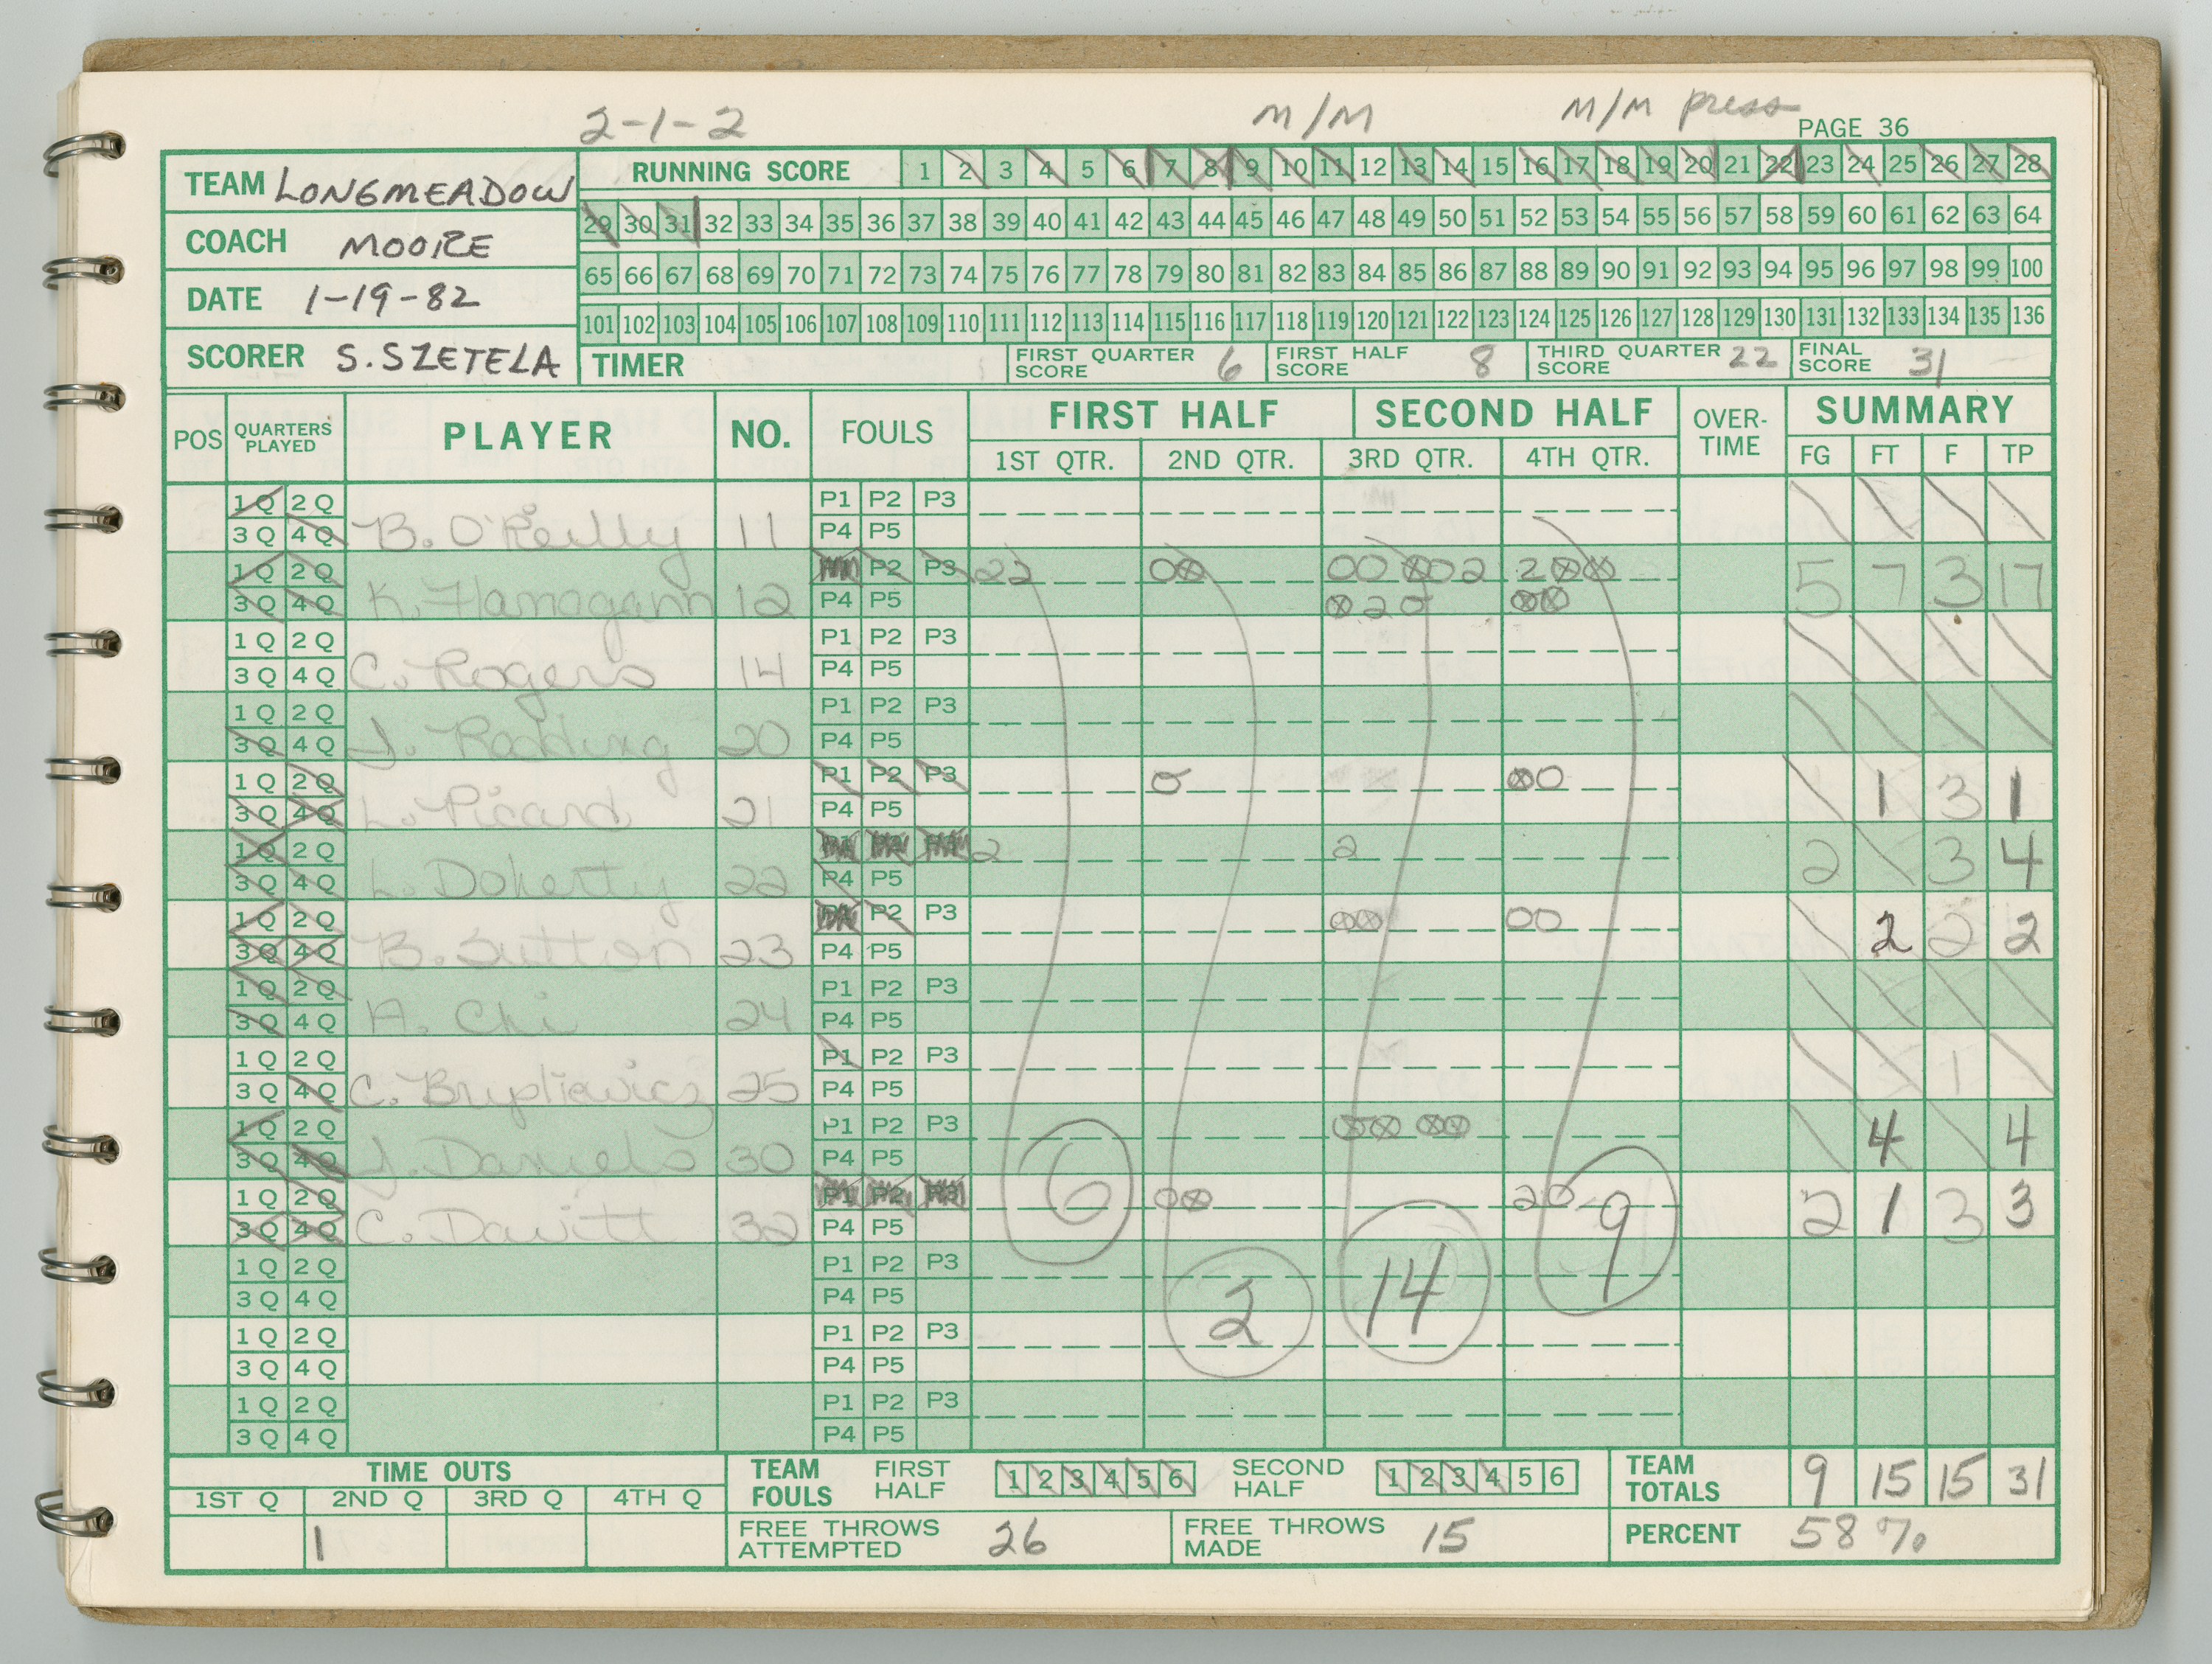 2-1-2 M/M M/M press
PAGE 36
TEAM LONGMEADOW
COACH MOORE
DATE 1-19-82
SCORER S. SZETELA
RUNNING SCORE 1 2 3 4 5 6 7 8 9 10 11 12 13 14 15 16 17 18 19 20 21 22 23 24 25 26 27 28
29 30 31 32 33 34 35 36 37 38 39 40 41 42 43 44 45 46 47 48 49 50 51 52 53 54 55 56 57 58 59 60 61 62 63 64
65 66 67 68 69 70 71 72 73 74 75 76 77 78 79 80 81 82 83 84 85 86 87 88 89 90 91 92 93 94 95 96 97 98 99 100
101 102 103 104 105 106 107 108 109 110 111 112 113 114 115 116 117 118 119 120 121 122 123 124 125 126 127 128 129 130 131 132 133 134 135 136
TIMER FIRST QUARTER SCORE 6 FIRST HALF SCORE 8 THIRD QUARTER SCORE 22 FINAL SCORE 31
POS QUARTERS PLAYED PLAYER NO. FOULS FIRST HALF SECOND HALF OVER-TIME SUMMARY
1ST QTR. 2ND QTR. 3RD QTR. 4TH QTR. FG FT F TP
1Q 2Q P1 P2 P3
3Q 4Q B. O'Reilly 11 P4 P5
1Q 2Q P2 P3 22 00 00 002 200 5 7 3 17
3Q 4Q K. Flanagann 12 P4 P5 020 00
1Q 2Q P1 P2 P3
3Q 4Q C. Rogers 14 P4 P5
1Q 2Q P1 P2 P3
3Q 4Q J. 20 P4 P5
1Q 2Q P1 P2 P3 0 00 1 3 1
3Q 4Q L. Picard 21 P4 P5
1Q 2Q 2 2 2 3 4
3Q 4Q L. Doherty 22 P4 P5
1Q 2Q P2 P3 00 00 2 2 2
3Q 4Q B. Sutton 23 P4 P5
1Q 2Q P1 P2 P3
3Q 4Q A. Chi 24 P4 P5
1Q 2Q P1 P2 P3 1
3Q 4Q C. 25 P4 P5
1Q 2Q P1 P2 P3 00 00 4 4
3Q 4Q J. Daniels 30 P4 P5
1Q 2Q P1 P2 P3 00 20 2 1 3 3
3Q 4Q C. Davitt 32 P4 P5
6 2 14 9
1Q 2Q P1 P2 P3
3Q 4Q P4 P5
1Q 2Q P1 P2 P3
3Q 4Q P4 P5
1Q 2Q P1 P2 P3
3Q 4Q P4 P5
TIME OUTS
1ST Q 2ND Q 3RD Q 4TH Q
1
TEAM FOULS FIRST HALF 1 2 3 4 5 6 SECOND HALF 1 2 3 4 5 6
TEAM TOTALS 9 15 15 31
FREE THROWS ATTEMPTED 26 FREE THROWS MADE 15 PERCENT 58%